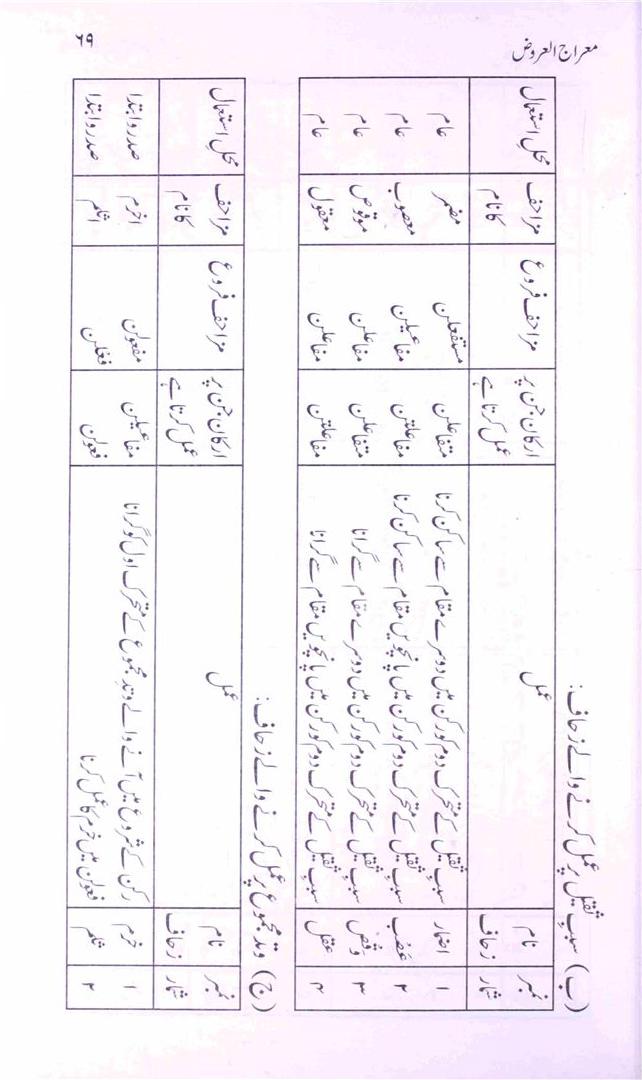 معراج العروض
۶۹
(ب) سببِ ثقیل پر عمل کرنے والے زحاف:
نمبر شمار | نام زحاف | عمل | ارکان جن پر عمل کرتا ہے | مزاحف فروع | مزاحف کا نام | محلِ استعمال
۱ | اضمار | سببِ ثقیل کے متحرک دوم کو رکن میں دوسرے مقام سے ساکن کرنا | متفاعلن | مستفعلن | مضمر | عام
۲ | عَصْب | سببِ ثقیل کے متحرک دوم کو رکن میں پانچویں مقام سے ساکن کرنا | مفاعلتن | مفاعیلن | معصوب | عام
۳ | وقْص | سببِ ثقیل کے متحرک دوم کو رکن میں دوسرے مقام سے گرانا | متفاعلن | مفاعلن | موقوص | عام
۴ | عقل | سببِ ثقیل کے متحرک دوم کو رکن میں پانچویں مقام سے گرانا | مفاعلتن | مفاعلن | معقول | عام
(ج) وتدِ مجموع پر عمل کرنے والے زحاف:
نمبر شمار | نام زحاف | عمل | ارکان جن پر عمل کرتا ہے | مزاحف فروع | مزاحف کا نام | محلِ استعمال
۱ | خرم | رکن کے شروع میں آنے والے وتدِ مجموع کے متحرک اول کو گرانا | مفاعیلن | مفعولن | اخرم | صدر و ابتدا
۲ | ثلم | فعولن میں خرم کا عمل کرنا | فعولن | فعْلن | اثلم | صدر و ابتدا